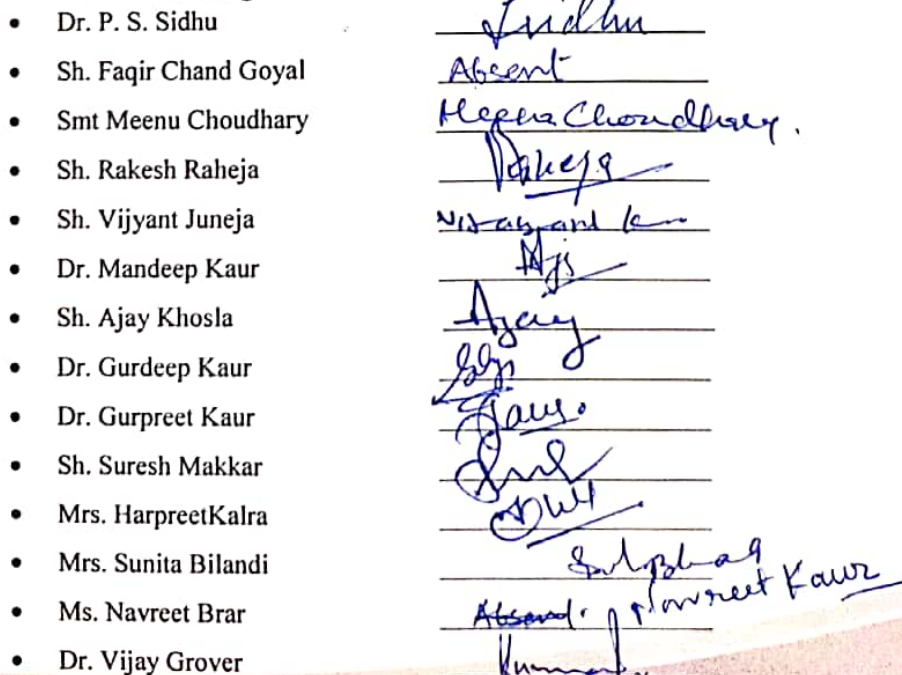 • Dr. P. S. Sidhu Sidhu
• Sh. Faqir Chand Goyal Absent
• Smt Meenu Choudhary Meenu Choudhary.
• Sh. Rakesh Raheja Raheja
• Sh. Vijyant Juneja
• Dr. Mandeep Kaur
• Sh. Ajay Khosla Ajay
• Dr. Gurdeep Kaur
• Dr. Gurpreet Kaur
• Sh. Suresh Makkar
• Mrs. HarpreetKalra
• Mrs. Sunita Bilandi
• Ms. Navreet Brar Absent. Navreet Kaur
• Dr. Vijay Grover